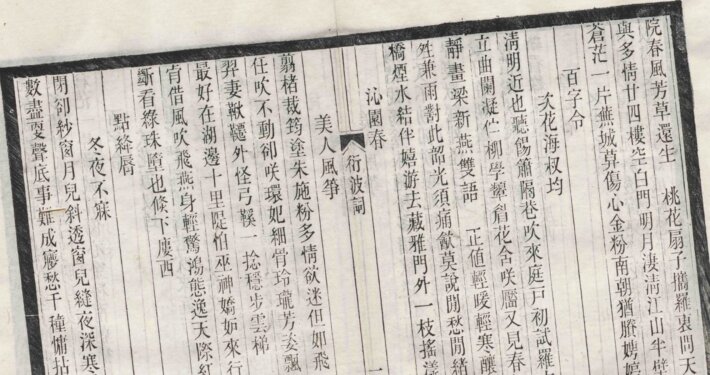 院春風芳草還生　桃花扇子擕羅問天
與多情廿四樓空白門明月淒清江山半壁
蒼茫一片蕪城草傷心金粉南朝猶賸娉婷
百字令
次花海叔均
清明近也聽餳簫隔巷吹來庭戶初試羅
立曲闌凝伫柳學顰眉花含咲靨又見春
靜畫梁新燕雙語　正值輕暖輕寒釀
兼雨對此韶光須痛飲莫說閒愁閒緒
橋煙水結伴嬉游去藏雅門外一枝搖漾
沁園春
衍波詞　一
美人風箏
翦楮裁筠塗朱施粉多情欲迷但如飛
任吹不動卻咲環妃細骨玲瓏芳姿飄
羿妻韆外怪弓鞵一捻穩步雲梯
最好在湖邊十里隄怕巫神嬌妒來行
肯借風吹飛燕身輕驚鴻態逸天際紅
斷看綠珠墮也倏下慶西
點絳脣
冬夜不寐
閉卻紗窗月兒斜透窗兒縫夜深寒
數盡更聲底事難成夢愁千種慵拈